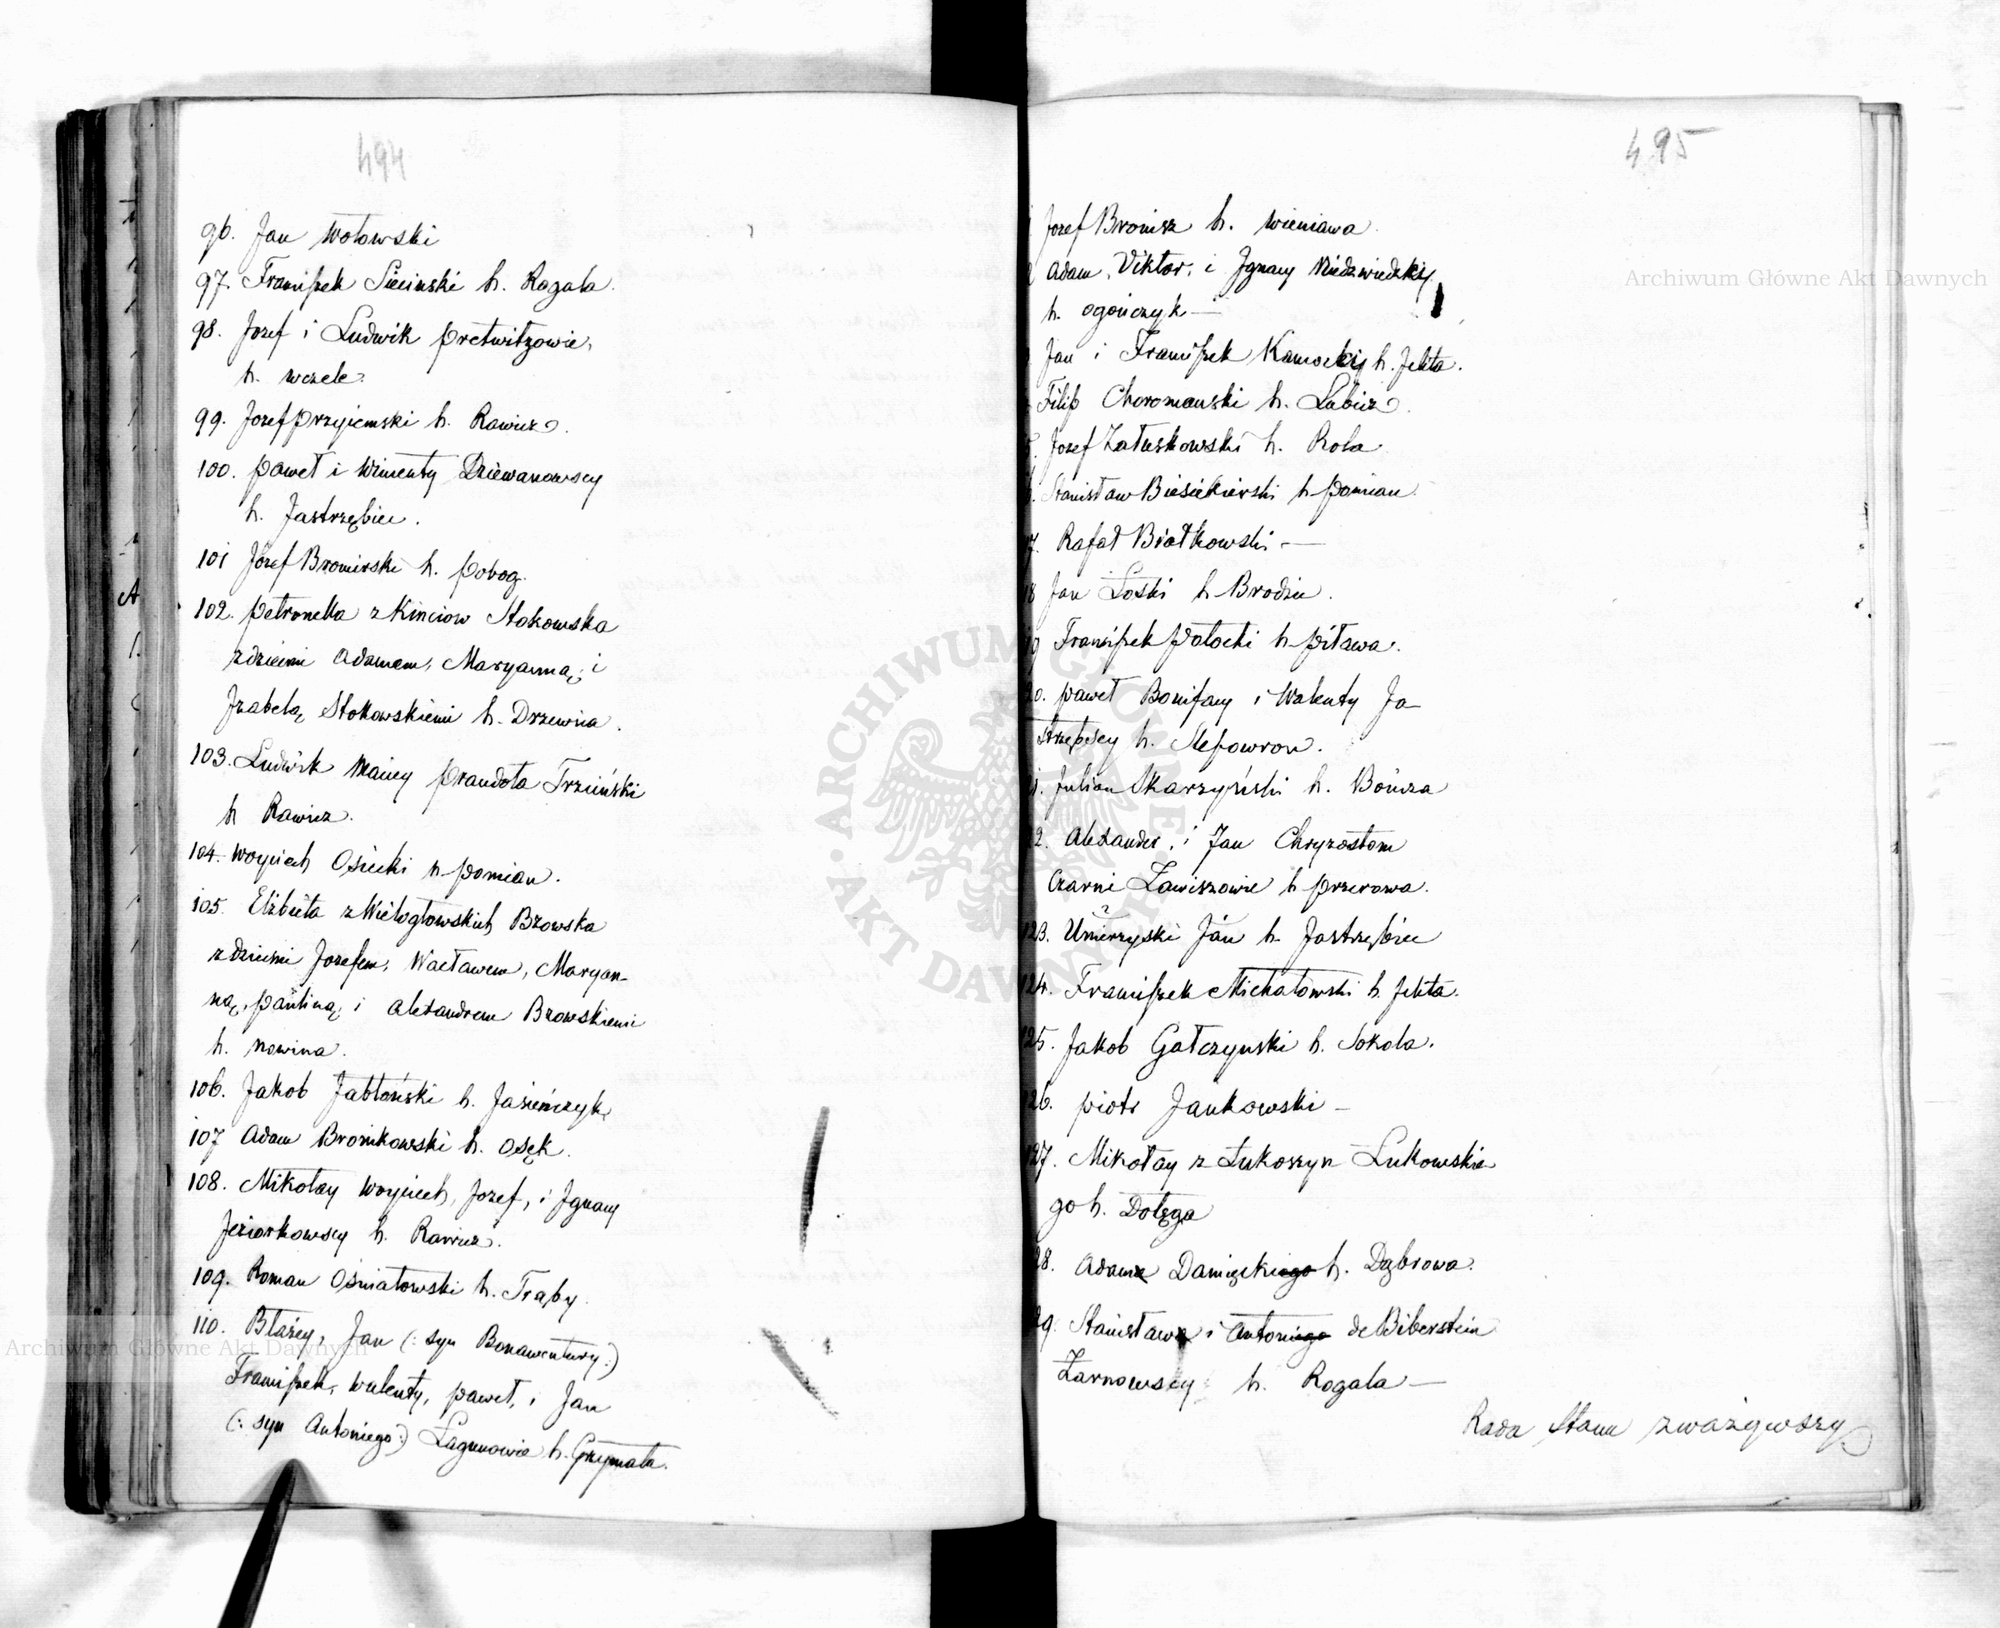 494
96. Jan Wołowski
97. Franciszek Siecinski h. Rogala.
98. Jozef i Ludwik Pretwitzowie,
h. Wczele.
99. Jozef Przyiemski h. Rawicz.
100. Paweł i Wincenty Dziewanowscy
h. Jastrzębiec.
101 Józef Bromirski h. Pobog.
102. Petronella z Kinciow Stokowska
z dziećmi Adamem, Maryanną, i
Izabelą Stokowskiemi h. Drzewica.
103. Ludwik Maciey Prandota Trzciński
h Rawicz.
104. Woyciech Osiecki h. Pomian.
105. Elżbieta z Wielogłowskich Bzowska
z dziećmi Jozefem, Wacławem, Maryan-
ną, Pauliną, i Alexandrem Bzowskiemi
h. Nowina.
106. Jakob Jabłoński h. Jasieńczyk.
107 Adam Bronikowski h. Osęk.
108. Mikołay Woyciech, Jozef, i Ignacy
Jeziorkowscy h. Rawicz.
109. Roman Ośniałowski h. Trąby.
110. Błażey, Jan (: syn Bonawentury:)
Franciszek, Walenty, Paweł, i Jan
(: syn Antoniego:) Łagunowie h. Grzymała.
495
Jozef Bronisz h. Wieniawa.
Adam, Viktor, i Ignacy Niedzwiedzki
h. Ogończyk —
Jan i Franciszek Kamockiy h. Jelita.
Filip Choromański h. Lubicz.
5. Jozef Załuskowski h. Rola.
6. Stanisław Biesiekierski h. Pomian.
7. Rafał Białkowski —
18 Jan Łoski h. Brodzic.
19 Franciszek Potocki h. Pilawa.
20. Paweł Bonifacy i Walenty Ja-
strzębscy h. Slepowron.
21. Julian Skarzyński h. Bończa
22. Alexander, i Jan Chryzostom
Czarni Zawiszowie h. Przerowa.
123. Umierzyski Jan h. Jastrzębiec
124. Franciszek Michałowski h. Jelita.
125. Jakob Gałczynski h. Sokola.
126. Piotr Jankowski —
127. Mikołay z Łukoszyn Lukowskie
go h. Dołęga
28. Adama Damięckiego h. Dąbrowa.
29. Stanisława i Antoniego de Biberstein
Żarnowscy h. Rogala —
Rada Stanu zważywszy
Archiwum Główne Akt Dawnych
Archiwum Główne Akt Dawnych
ARCHIWUM GŁÓWNE AKT DAWNYCH